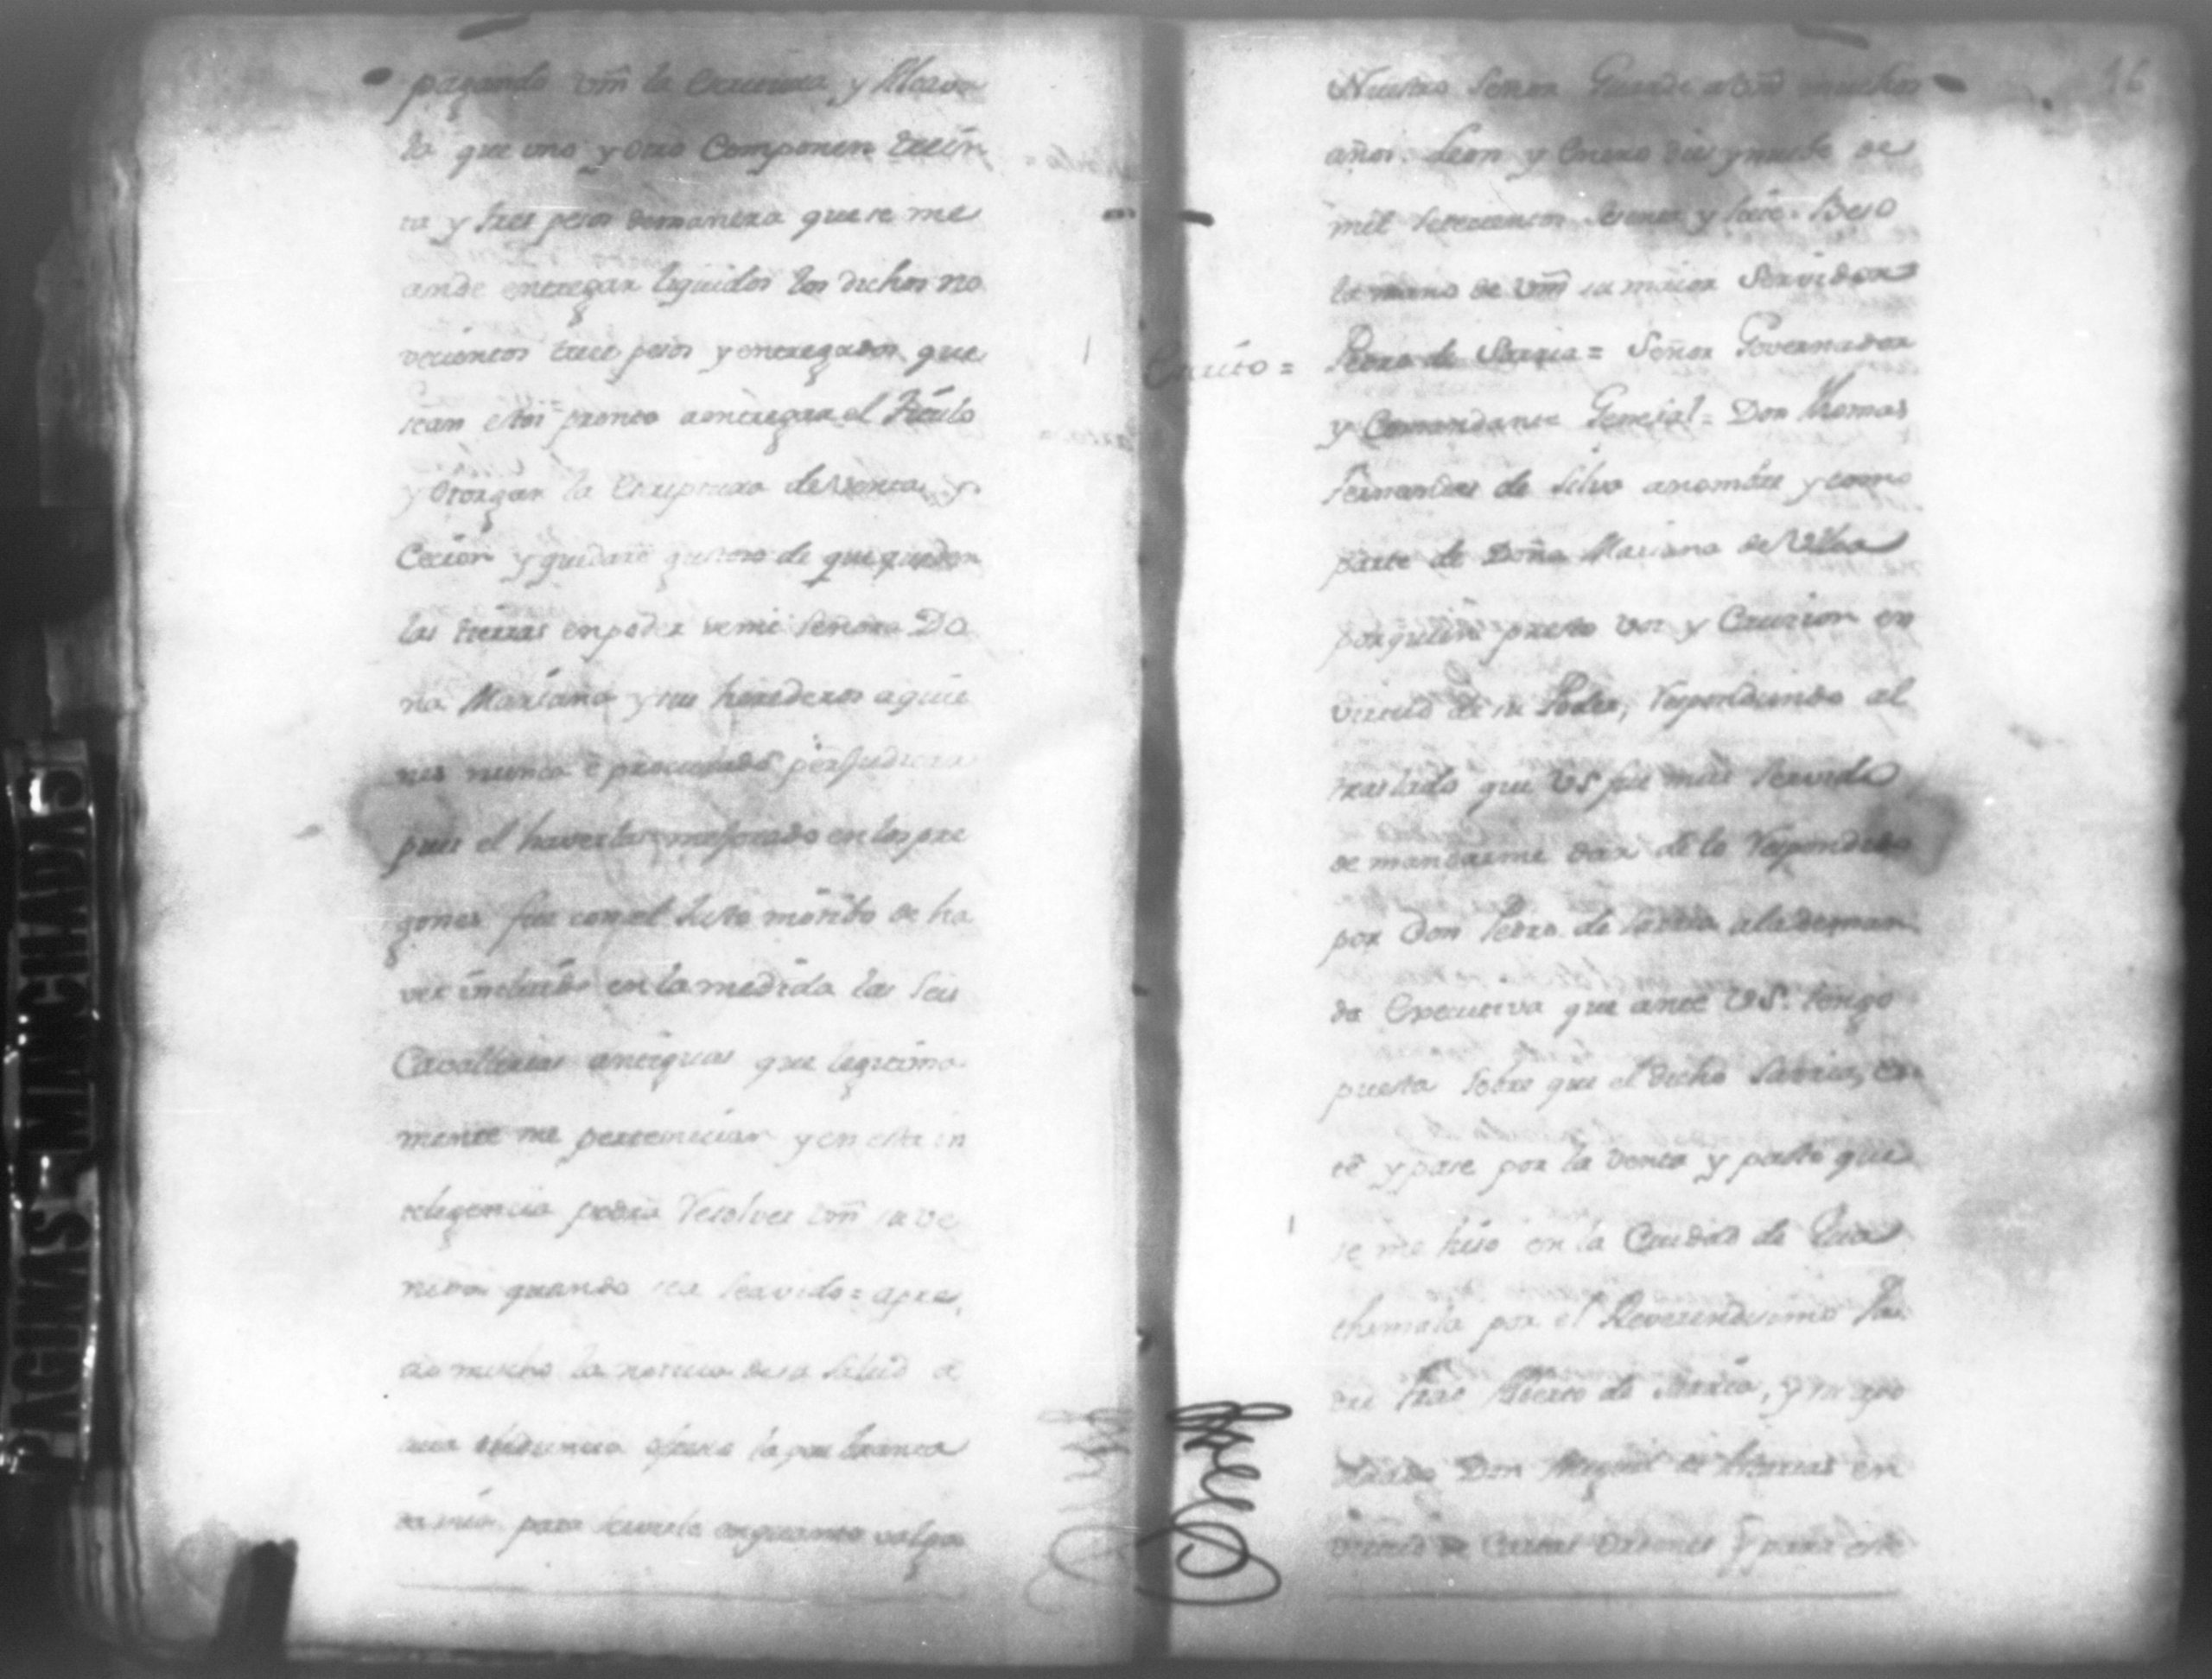 pagando Vm̃ la Escritura y Alcava
la que uno y otro Componen trein
ta y tres pesos demanera que se me
ande entregar liquidos los dichos no
vecientos trece pesos y entregados que
sean estoi pronto a entregar el Titulo
y Otorgar la Escriptura de venta y
Cecion y quedaré gustoso de que queden
las tierras en poder de mi Señora Do
na Mariana y sus herederos a quie
nes nunca é procurado perjudicar
pues el haverlas mejorado en los pre
gones fue con el Justo motibo de ha
ver incluido en la medida las Seis
Cavallerias antiguas que legitima
mente me pertenecian y en esta in
teligencia podra Resolver Vm̃ su ve
nida quando sea Servido = apre
cio mucho la noticia de su Salud a
cuia obediencia ofresco la que
para servirle en quanto valga
16
Nuestro Señor Guarde a Vm̃ muchos
años. Leon y Enero dies y nuebe de
mil setecientos sesenta y siete. Beso
la mano de Vm̃ su maior Servidor
Pedro de Sarria = Señor Governador
Escrito =
y Comandante General = Don Thomas
Fernandes de Silva a nombre y como
parte de Doña Mariana de Ulloa
por quien presto voz y Caucion en
virtud de su Poder, Respondiendo al
traslado que VS fue mui Servido
de mandarme dar de lo Respondido
por Don Pedro de Sarria a la deman
da Executiva que ante VS. tengo
puesta Sobre que el dicho Sarria, es
té y pase por la Venta y pacto que
se me hiso en la Ciudad de Gua
themala por el Reverendisimo Pa
dre Frai Alberto de Sarria, y su apo
derado Don Miguel de en
virtud de Cartas Ordenes y para este
PAGINAS MANCHADAS